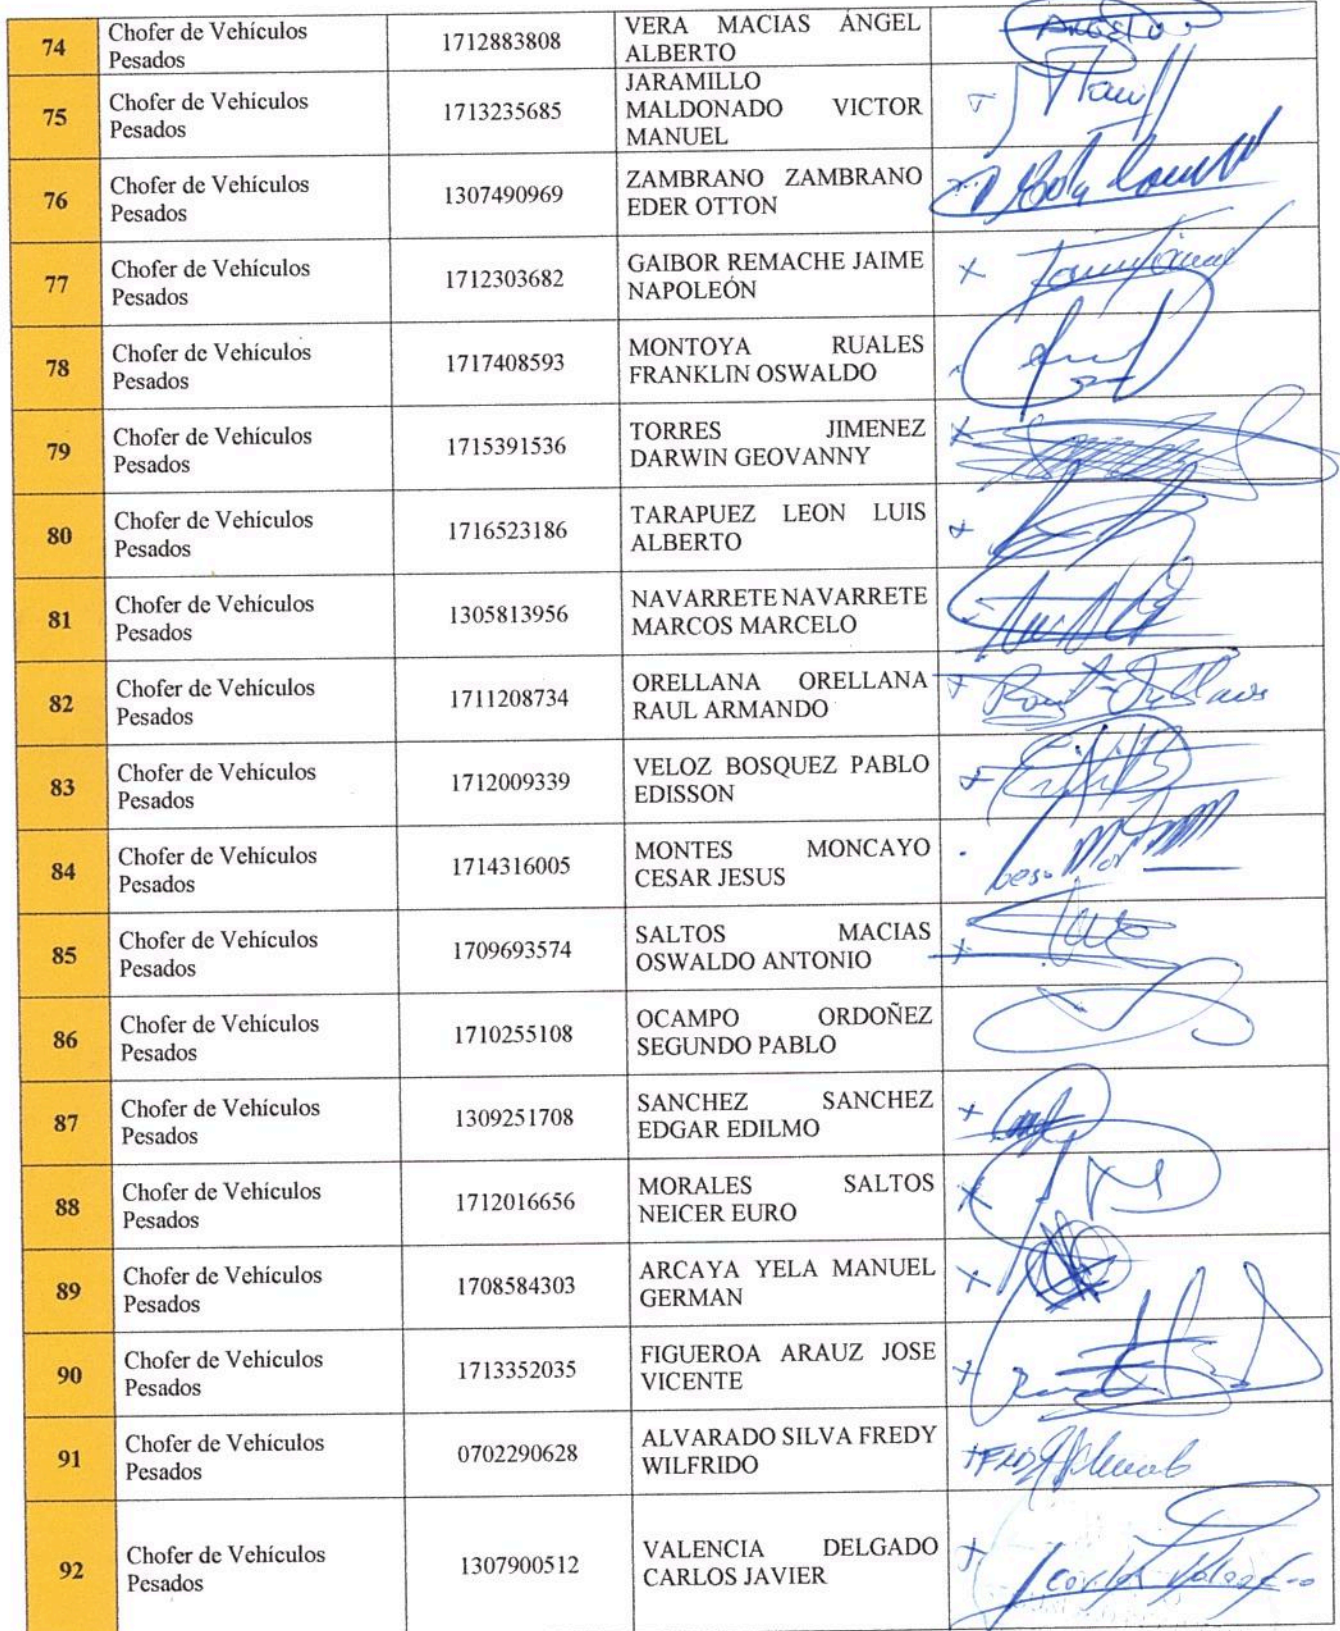 74 Chofer de Vehículos Pesados 1712883808 VERA MACIAS ÁNGEL ALBERTO
75 Chofer de Vehículos Pesados 1713235685 JARAMILLO MALDONADO VICTOR MANUEL
76 Chofer de Vehículos Pesados 1307490969 ZAMBRANO ZAMBRANO EDER OTTON
77 Chofer de Vehículos Pesados 1712303682 GAIBOR REMACHE JAIME NAPOLEÓN
78 Chofer de Vehículos Pesados 1717408593 MONTOYA RUALES FRANKLIN OSWALDO
79 Chofer de Vehículos Pesados 1715391536 TORRES JIMENEZ DARWIN GEOVANNY
80 Chofer de Vehículos Pesados 1716523186 TARAPUEZ LEON LUIS ALBERTO
81 Chofer de Vehículos Pesados 1305813956 NAVARRETE NAVARRETE MARCOS MARCELO
82 Chofer de Vehículos Pesados 1711208734 ORELLANA ORELLANA RAUL ARMANDO
83 Chofer de Vehículos Pesados 1712009339 VELOZ BOSQUEZ PABLO EDISSON
84 Chofer de Vehículos Pesados 1714316005 MONTES MONCAYO CESAR JESUS
85 Chofer de Vehículos Pesados 1709693574 SALTOS MACIAS OSWALDO ANTONIO
86 Chofer de Vehículos Pesados 1710255108 OCAMPO ORDOÑEZ SEGUNDO PABLO
87 Chofer de Vehículos Pesados 1309251708 SANCHEZ SANCHEZ EDGAR EDILMO
88 Chofer de Vehículos Pesados 1712016656 MORALES SALTOS NEICER EURO
89 Chofer de Vehículos Pesados 1708584303 ARCAYA YELA MANUEL GERMAN
90 Chofer de Vehículos Pesados 1713352035 FIGUEROA ARAUZ JOSE VICENTE
91 Chofer de Vehículos Pesados 0702290628 ALVARADO SILVA FREDY WILFRIDO
92 Chofer de Vehículos Pesados 1307900512 VALENCIA DELGADO CARLOS JAVIER